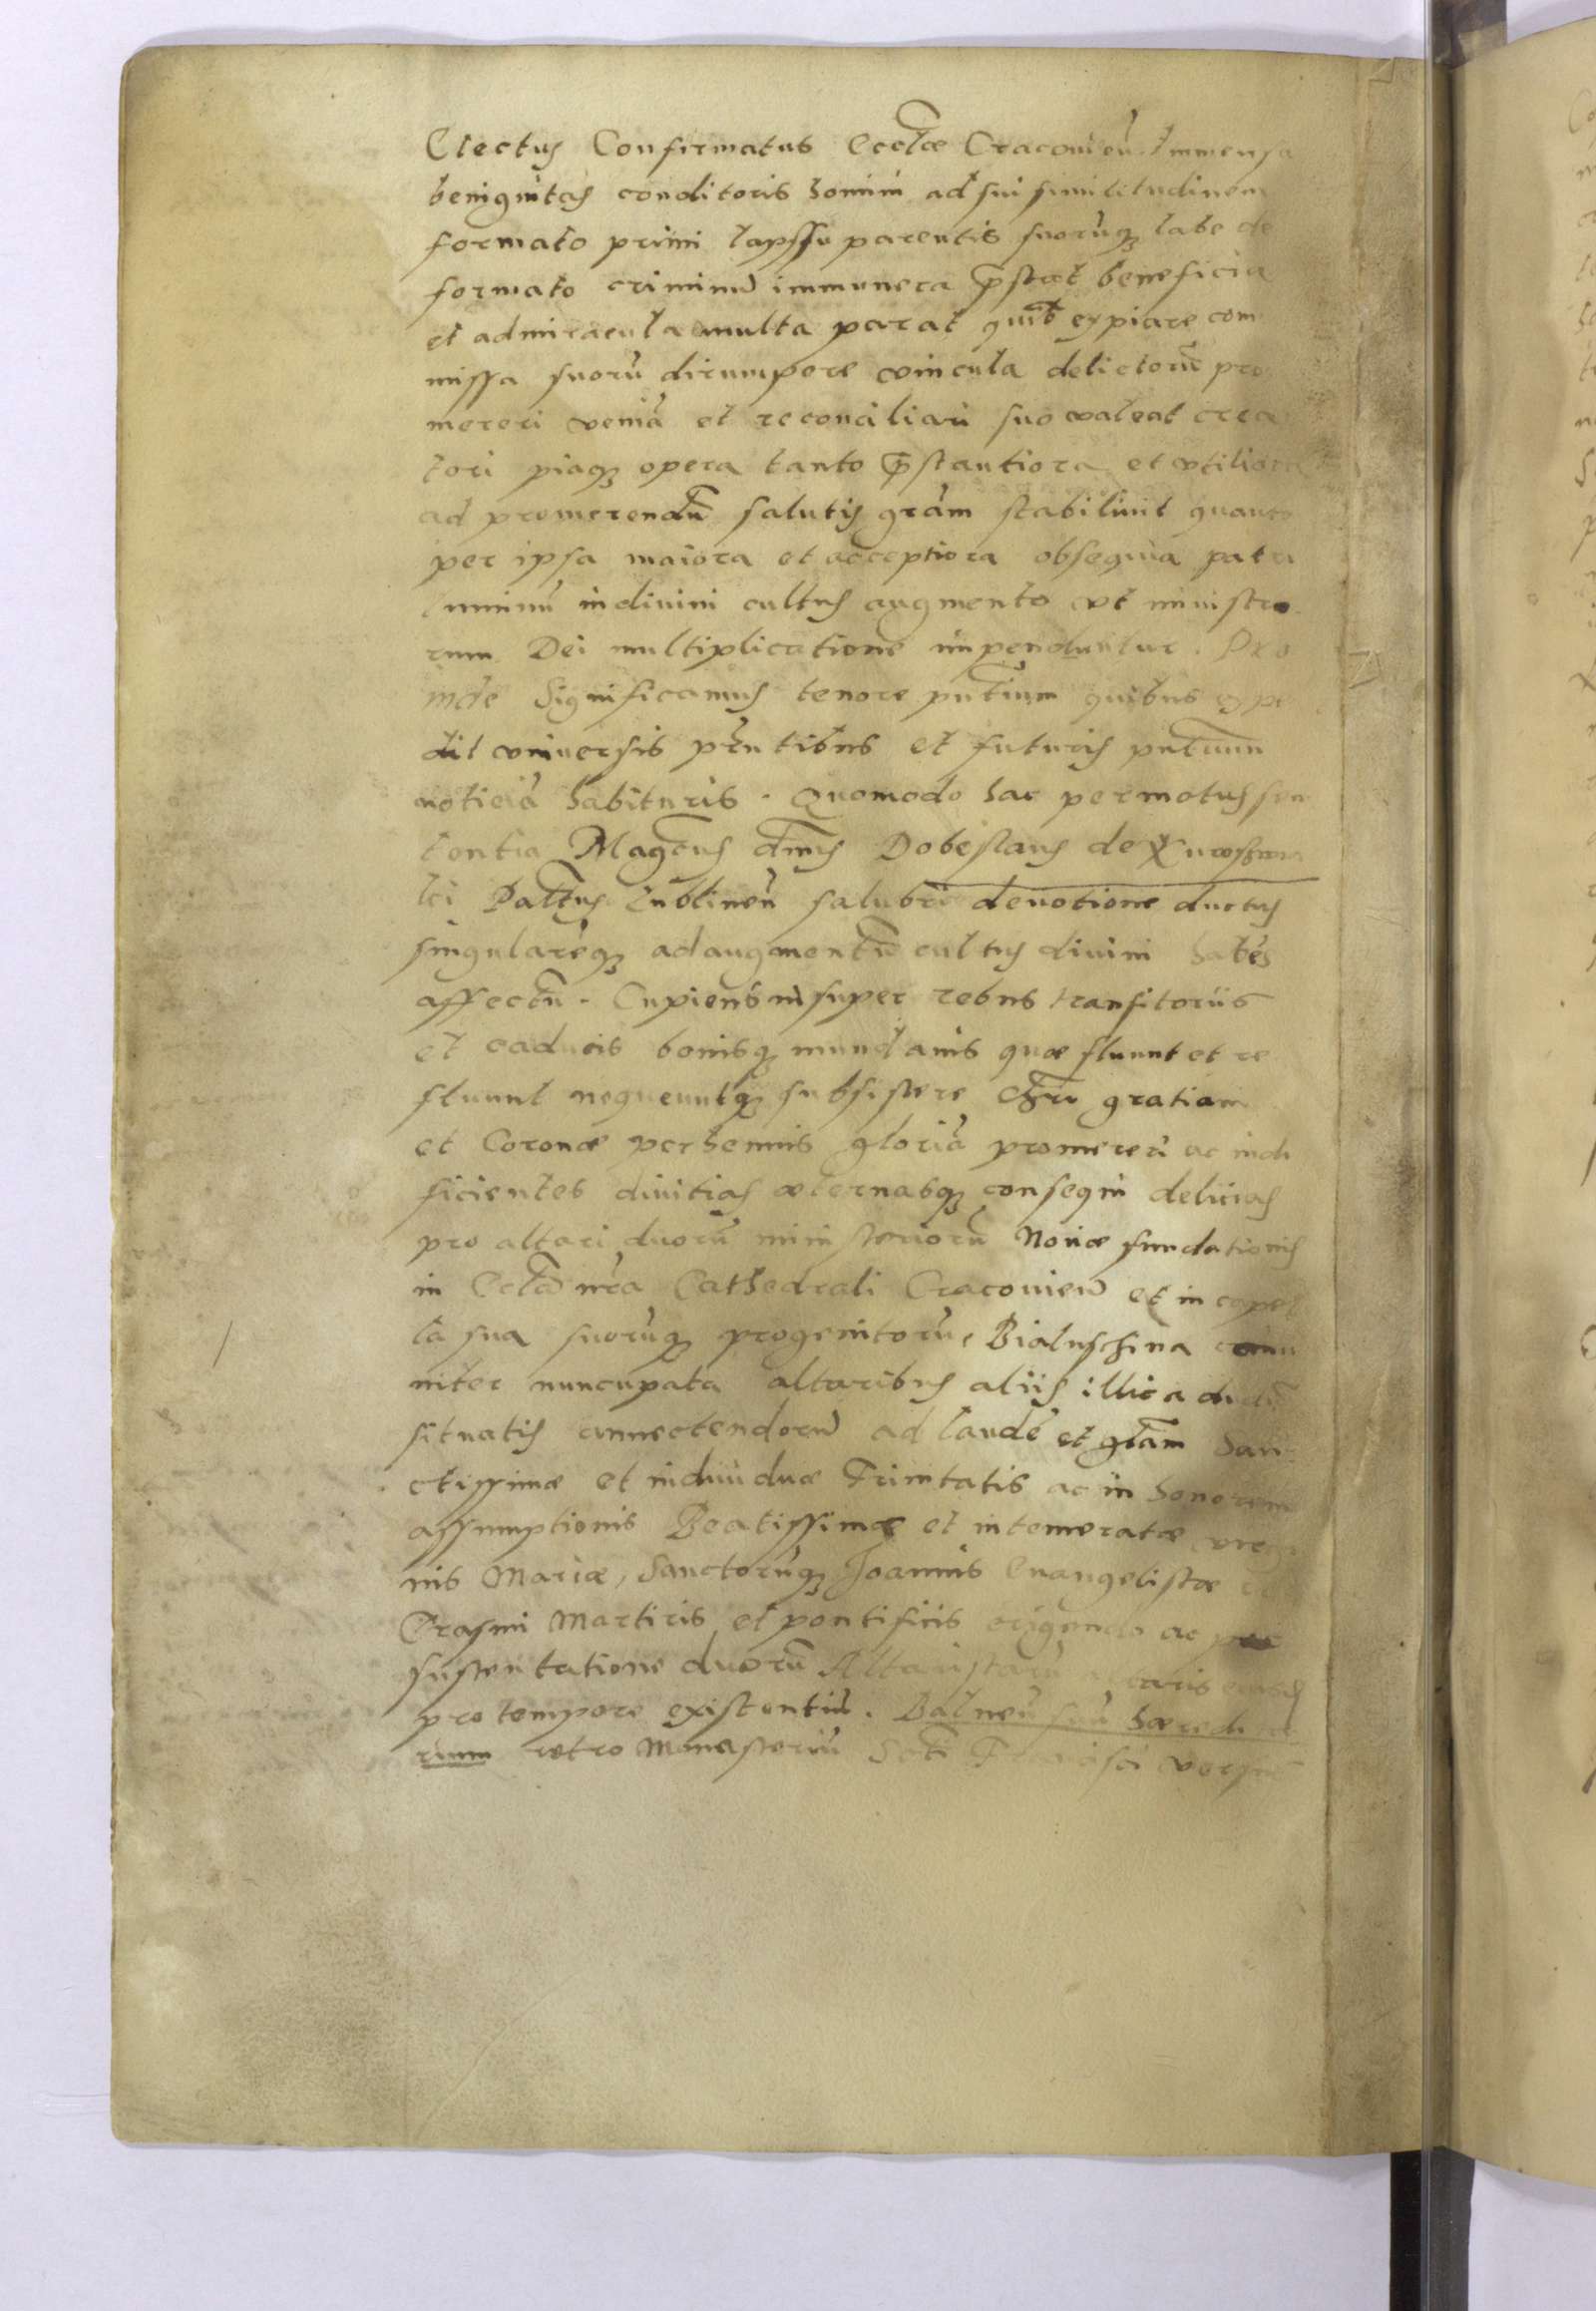 Electus Confirmatus Eccłæ Cracovień. Immensa
benignitas conditoris homini ad sui similitudinem
formato primi lapssu parentis suorūq3 labe de
formato criminū immunera p̄stat beneficia
et admiracula multa parat quib expiare com
missa suorū dirumpere vincula delictorū pro
mereri veniā et reconciliari suo valeat crea
tori piaq3 opera tanto p̄stantiora et vtiliora
ad promerendū salutis grām stabiliuit quanto
per ipsa maiora et acceptiora obsequia patri
luminū in diuini cultus augmento vt ministro
rum Dei multiplicatione impenduntur. Pro
inde Significamus tenore pntium quibus expe
dit vniuersis prntibus et futuris pntium
noticiā habituris. Quomodo hac permotus sen
tentia Magcus dnus Dobeslaus de
lci Paltnus Lublineń salubri devotione ductus
singularēq3 ad augmentū cultus diuini habēs
affectū. Cupiens insuper rebus transitoriis
et caducis bonisq3 mundanis quæ fluunt et re
fluunt nequeuntq3 subsistere Chri gratiam
et Coronæ perhennis gloriā promereri ac indi
ficientes diuitias æternasq3 consequi delicias
pro altari duorū ministeriorū Nouæ fundationis
in Ecła nrā Cathedrali Cracovień et in capel
la sua suorūq3 progenitorū, Bialuschina comu
niter nuncupata altaribus aliis illic a
situatis annectendorū ad laudē et głam San
ctissimæ et indiuiduæ Trinitatis ac in honorem
assumptionis Beatissimæ et intemeratæ virgi
nis Mariæ, Sanctorūq3 Joannis Euangelistæ et
Erasmi Martiris et pontificis erigendo ac pro
sustentatione duorū Altaristarū
pro tempore existentiū. Balneū suū hæredi
rium retro Monasteriū Scti Francisci versus